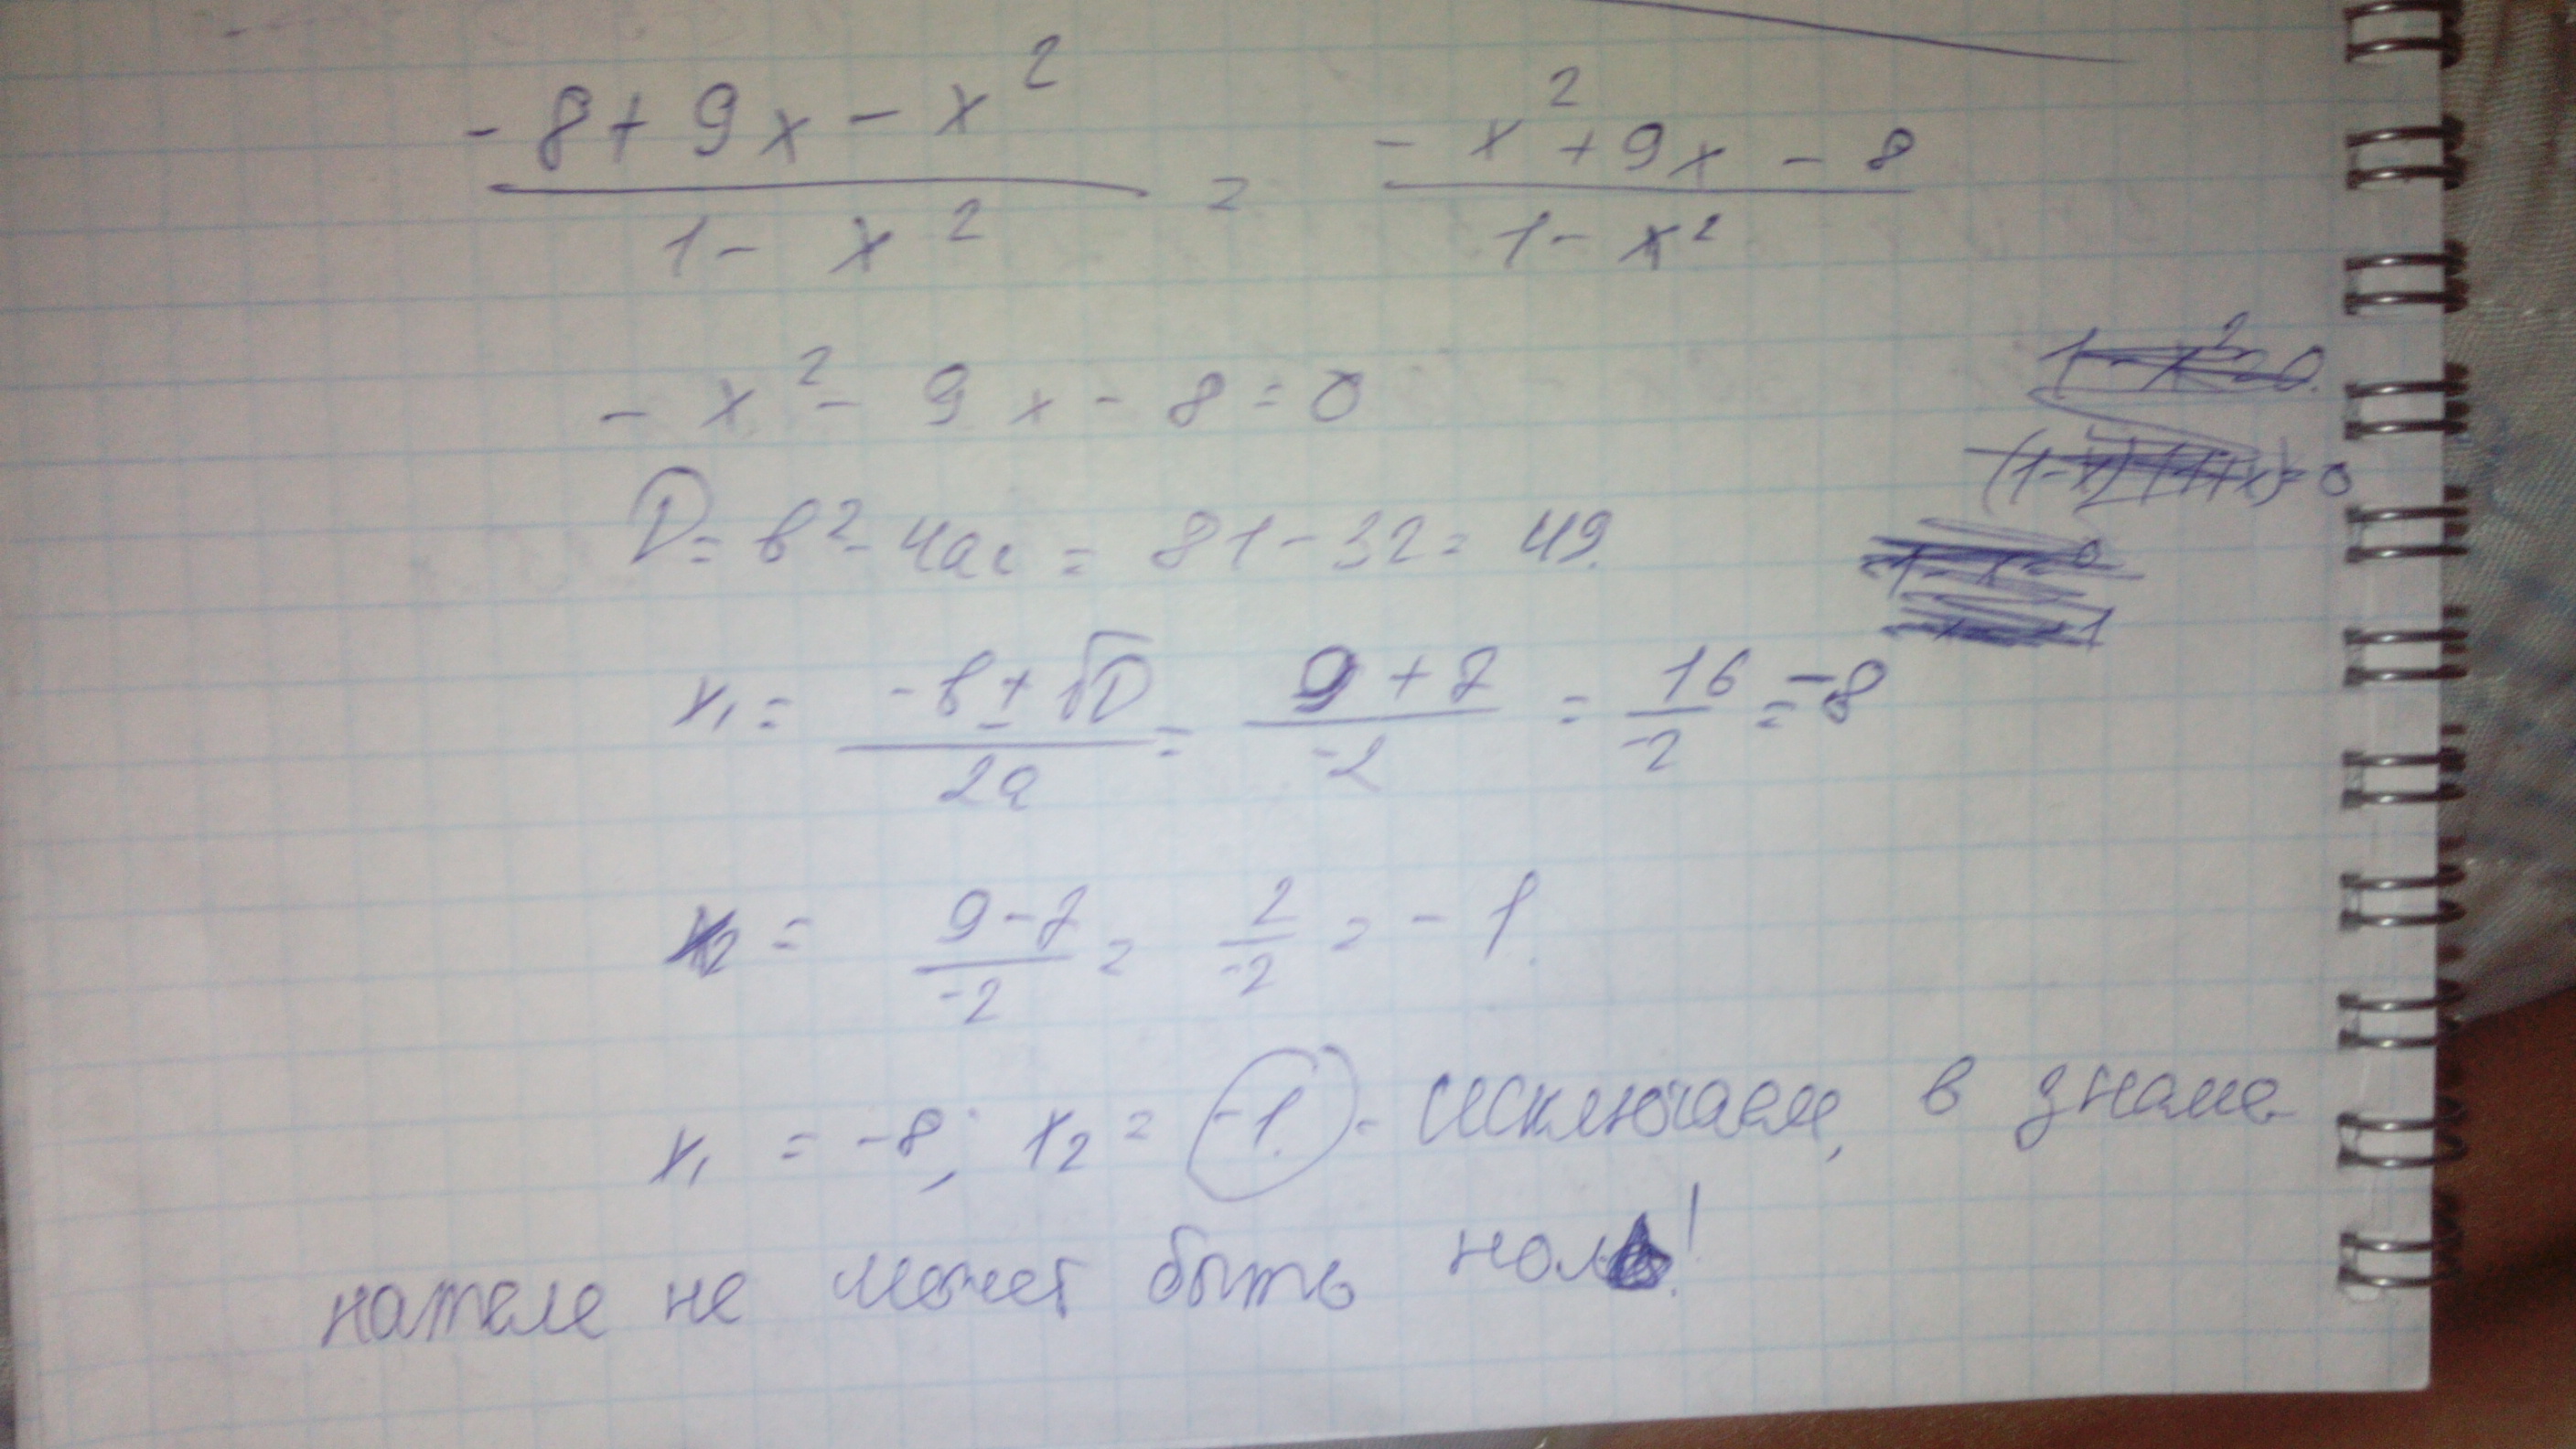 -8+9x-x²/1-x² = -x²+9x-8/1-x²
-x²-9x-8=0
D=в²-4ас=81-32=49.
x₁=-в±√D/2а=9+7/-2=16/-2=-8
x₂=9-7/-2=2/-2=-1.
x₁=-8; x₂=-1.- исключаем, в знаме-
нателе не может быть ноль!
1-x²=0.
(1-x)(1+x)=0